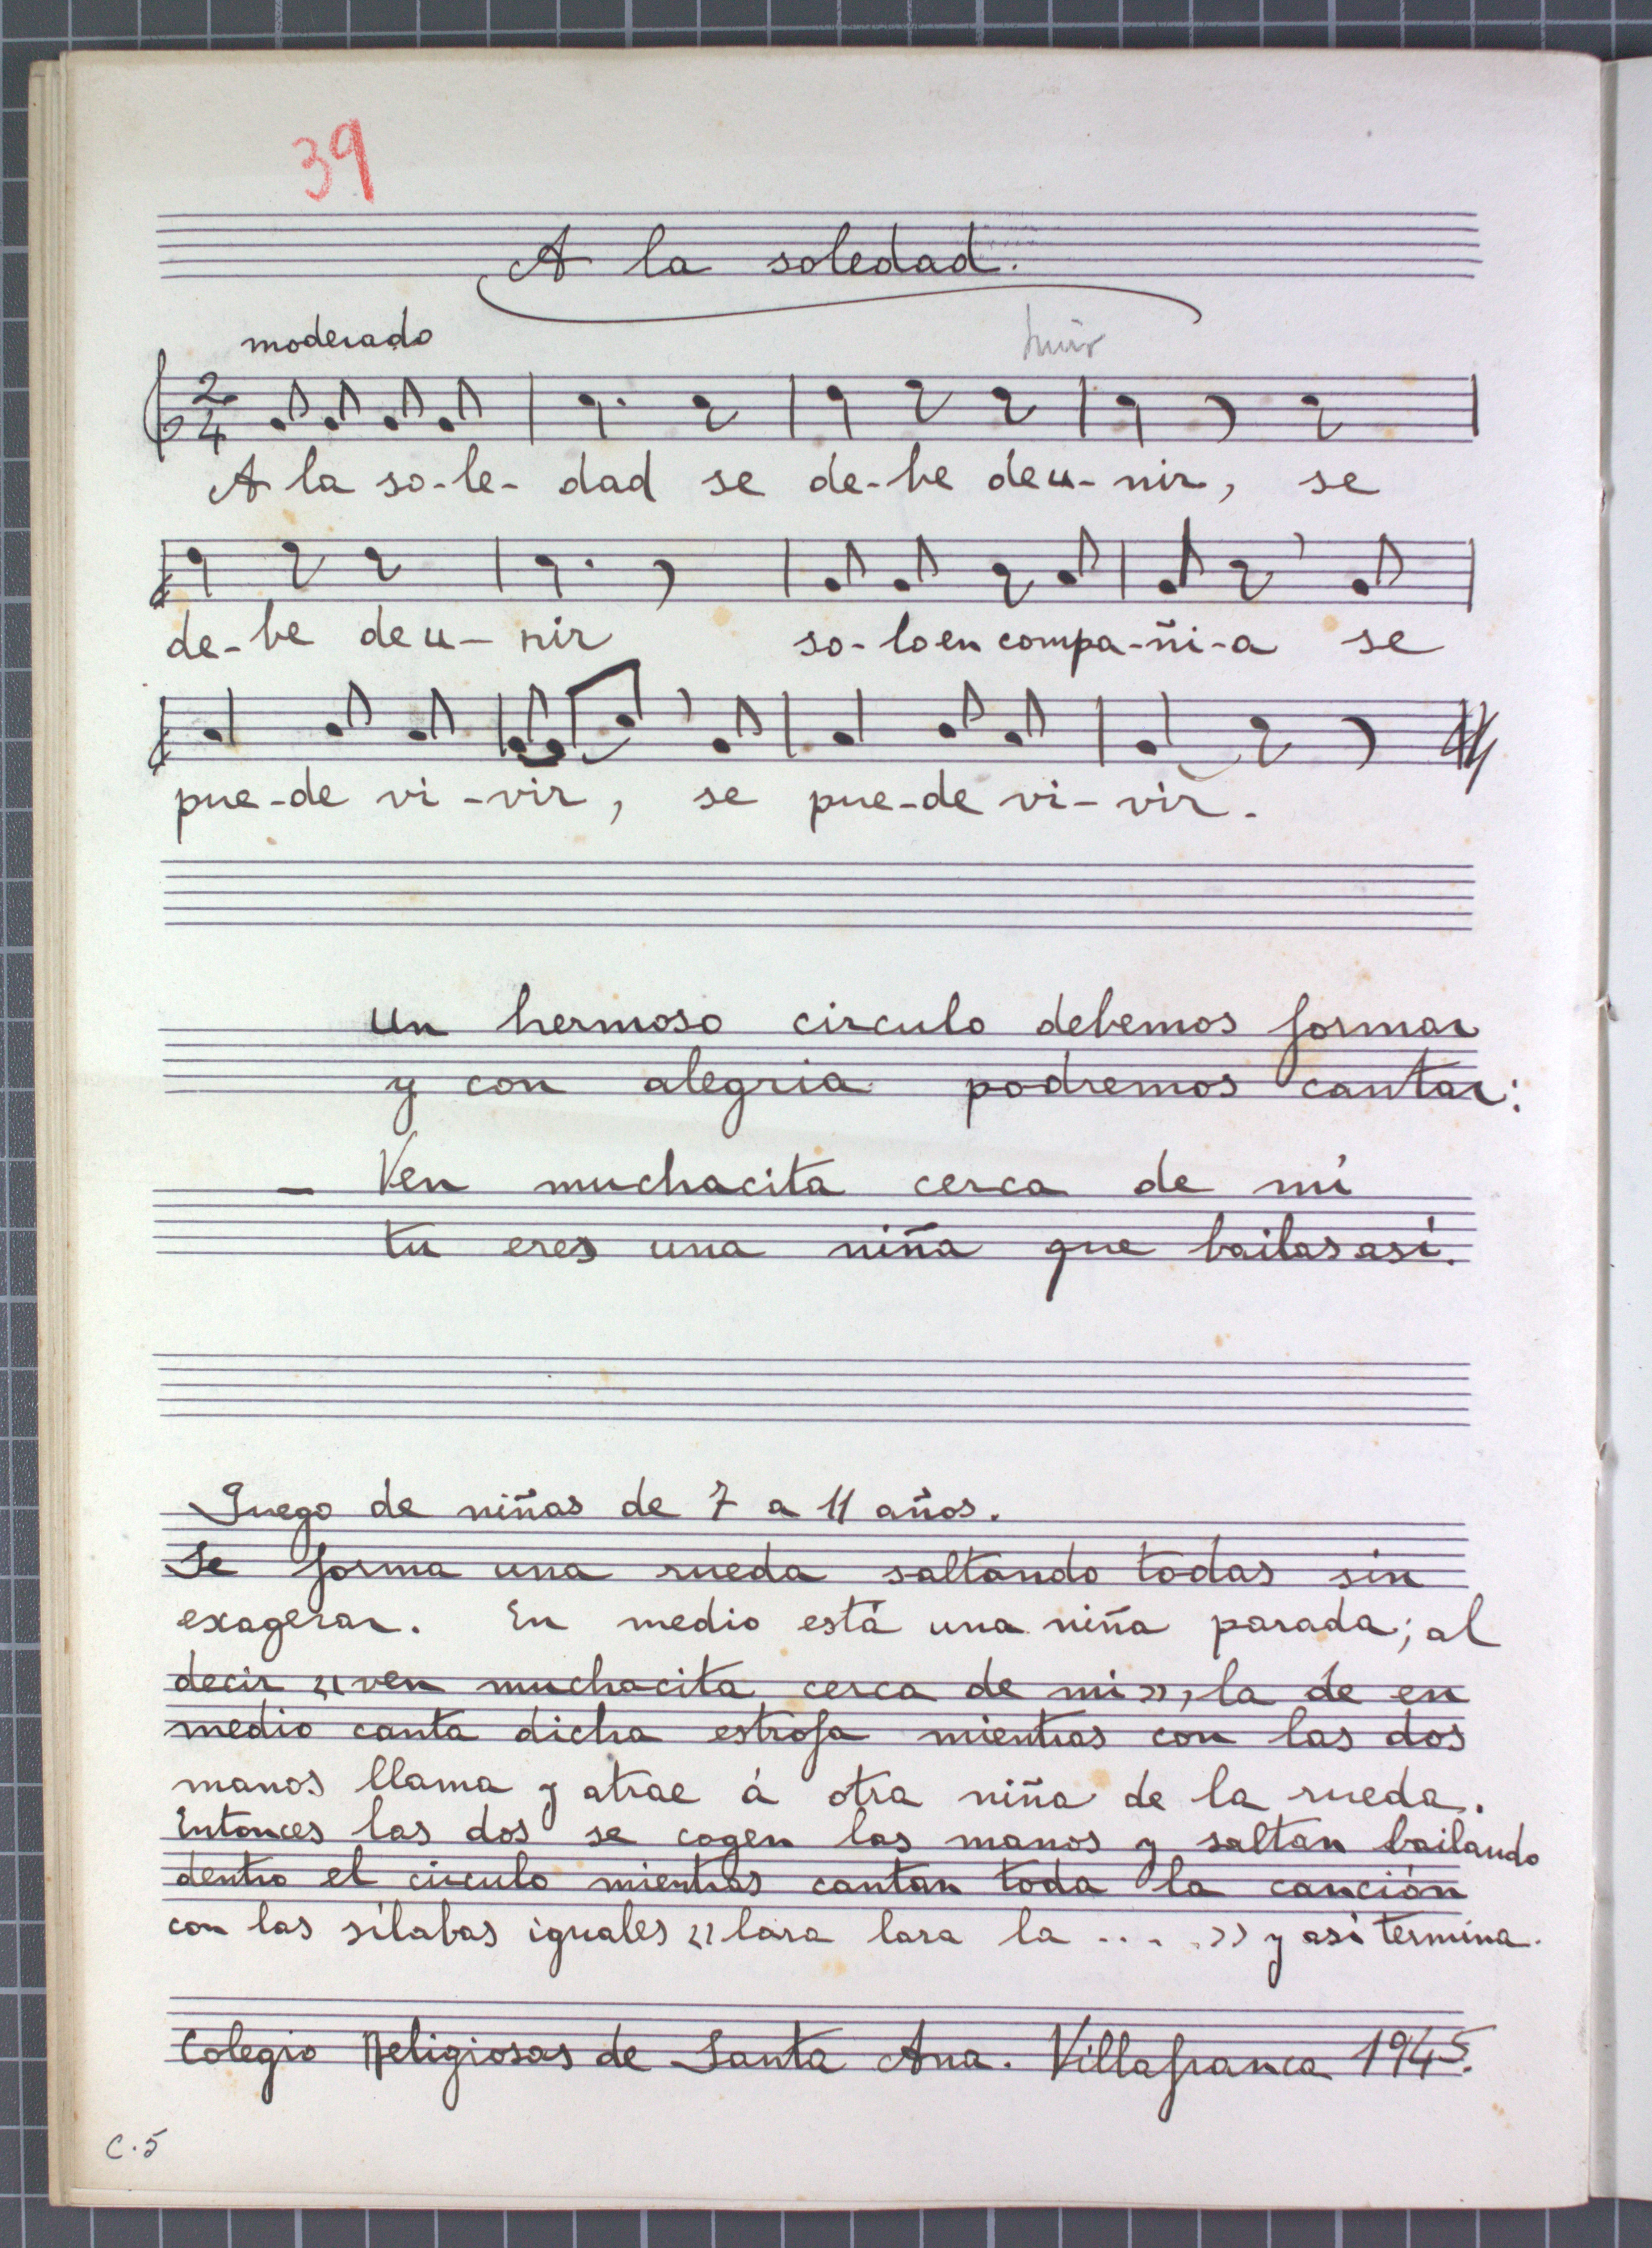 39
A la soledad.
moderado
2
4
A la so-le- dad se de-be deu-nir, se
de-be deu-nir so-loen compa-ñi-a se
pue-de vi-vir, se pue-de vi-vir.
Un hermoso circulo debemos formar
y con alegria podremos cantar:
- Ven muchacita cerca de mí
tu eres una niña que bailas asi.
Juego de niñas de 7 a 11 años.
Se forma una rueda saltando todas sin
exagerar. En medio está una niña parada; al
decir «ven muchacita cerca de mi», la de en
medio canta dicha estrofa mientras con las dos
manos llama y atrae á otra niña de la rueda.
Entonces las dos se cogen las manos y saltan bailando
dentro el circulo mientras cantan toda la canción
con las sílabas iguales «lara lara la ... .» y asi termina.
Colegio Religiosas de Santa Ana. Villafranca 1945.
C.5